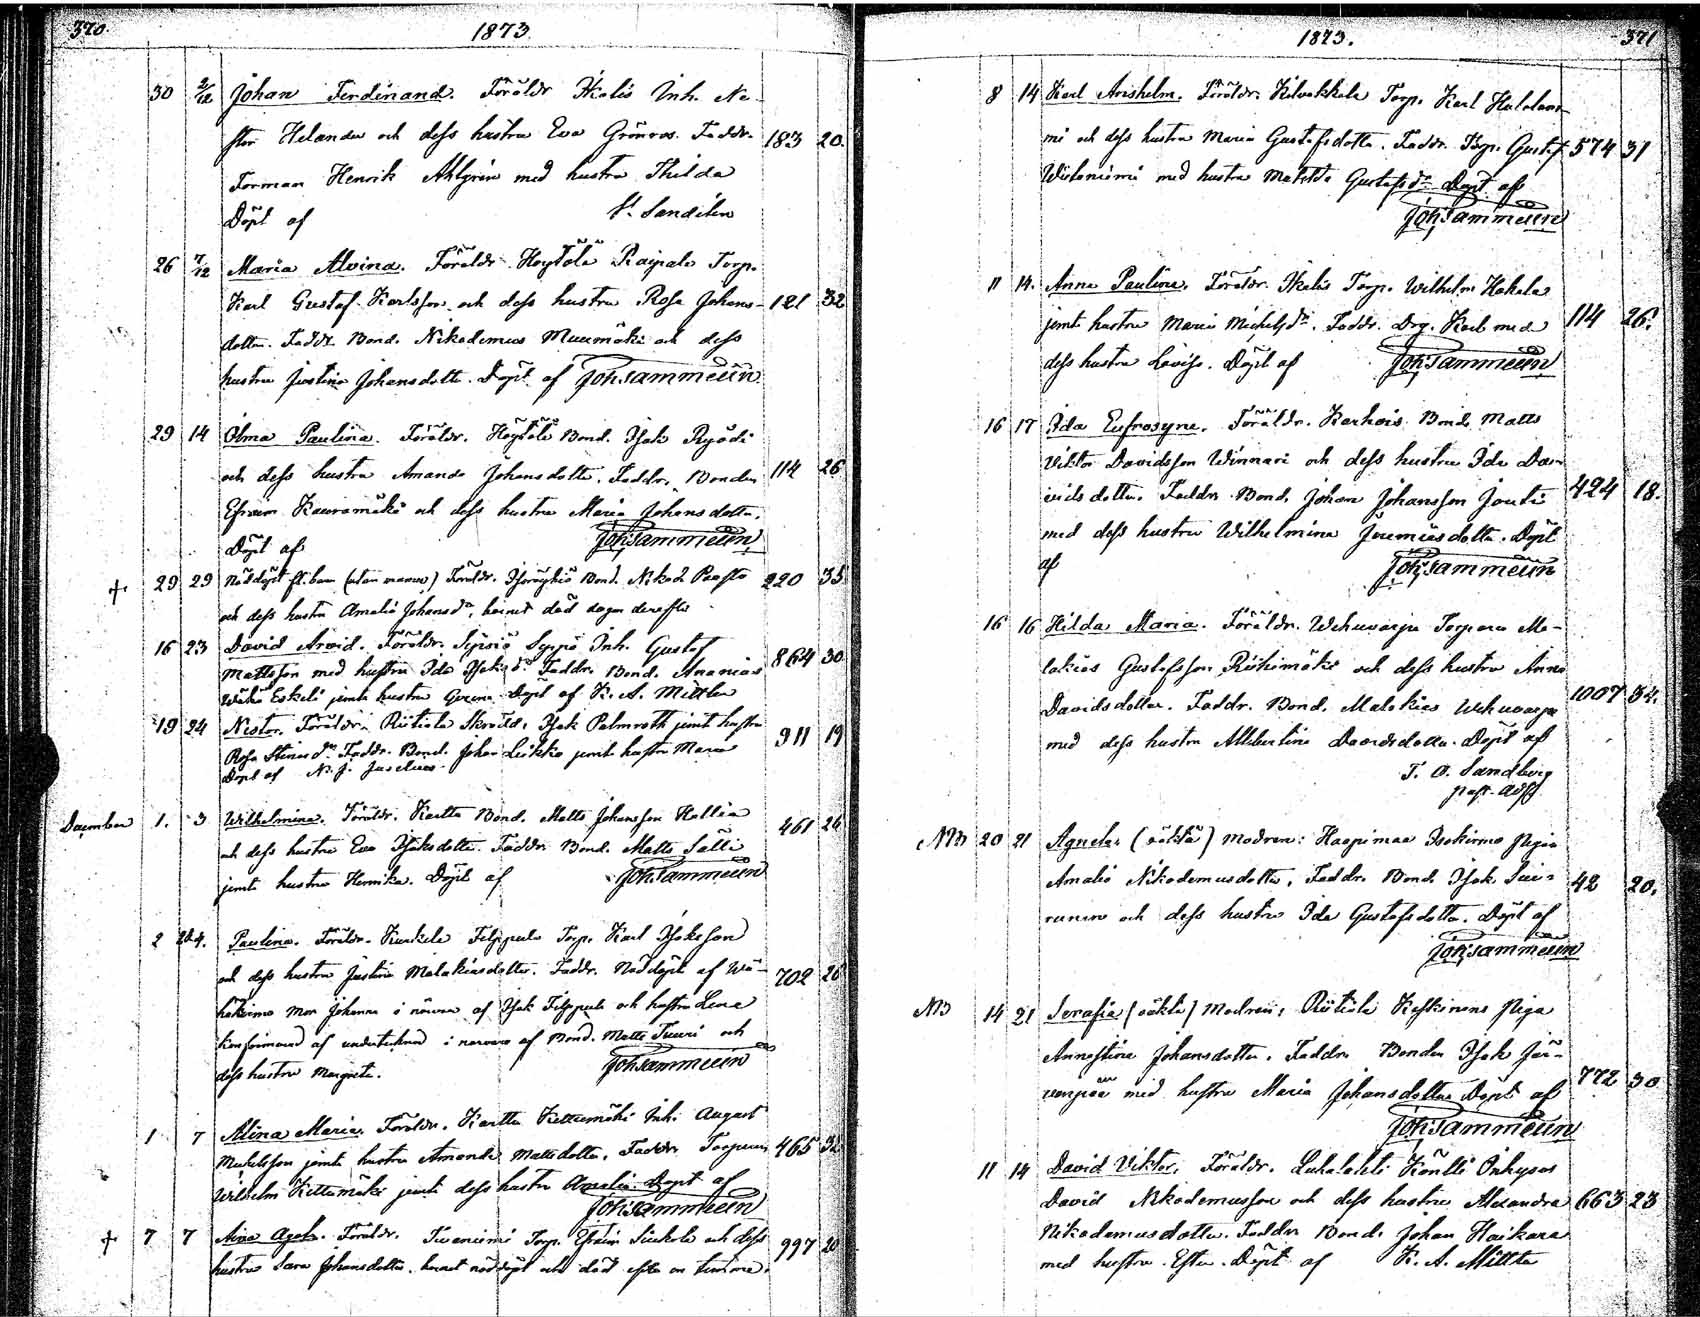 370.
1873
30 2/12 Johan Ferdinand. Föräldr. Ikalis Inh. Ne-
stor Helander och dess hustru Eva Grönroos. Faddr. 183 20.
Forman Henrik Ahlgren med hustru Thilda
Döpt af
26 7/12 Maria Alvina. Föräldr. Höytölä Raipala Torp.
Karl Gustaf Karlsson och dess hustru Rosa Johans- 121 32
dotter. Faddr. Bond. Nikodemus Muumäki och dess
hustru Justina Johansdotter. Döpt af Joh: Sammelin
29 14 Olma Paulina. Föräldr. Höytölä Bond. Isak Ryödi
och dess hustru Amanda Johansdotter. Faddr. Bonden 114 26
Efraim Kauramäki och dess hustru Maria Johansdotter.
Döpt af Joh: Sammelin
29 29 Nöddöpt (utan namn) Föräldr. Bond. 220 35
och dess hustru Amalia Johansdr, barnet död dagen derefter
16 23 David Arvid. Föräldr. Sipsiö Inh. Gustaf
Mattsson med hustru Ida Isaksdr Faddr. Bond. Ananias 864 30
Eskeli jemte hustru Döpt af K. A. Mittler
19 24 Nestor. Föräldr. Riitiala Skrädd. Isak Palmroth jemte hustru
Rosa Faddr. Bond. Johan Leikko jemte hustru Maria 911 19
Döpt af N. J. Juselius
December 1. 3 Wilhelmina. Föräldr. Kartta Bond. Matts Johansson Kallia 461 26
och dess hustru Eva Isaksdotter. Faddr. Bond. Matts Sälli
jemte hustru Henrika. Döpt af Joh: Sammelin
2 4. Paulina. Föräldr. Kurkela Filppula Torp. Karl Isaksson
och dess hustru Justina Malakiasdotter. Faddr. Nöddöpt af Wä- 702 26
häkirmo mor Johanna i närvaro af Isak Filppula och hustru Lena
konfirmerad af undertecknad i närvaro af Bond. Matts Tuuri och
dess hustru Margreta. Joh: Sammelin
1 7 Alina Maria. Föräldr. Kartta Kettumäki Inh. August
Michelsson jemte hustru Amanda Mattsdotter. Faddr. Torparen 465 32
Wilhelm Kettumäki jemte dess hustru Amalia. Döpt af
Joh: Sammelin
7 7 Aina Föräldr. Torp. Efraim och dess 997 20
hustru Sara Johansdotter. barnet nöddöpt och död efter en timme.
1873.
371
8 14 Karl Anshelm. Föräldr. Kilvakkala Torp. Karl
mi och dess hustru Maria Gustafsdotter. Faddr. Torp. Gustaf 574 31
med hustru Matilda Gustafsdr Döpt af
Joh: Sammelin
11 14. Anna Paulina. Föräldr. Ikalis Torp. Wilhelm Hakala
jemte hustru Maria Michelsdr. Faddr. Drg. Karl med 114 26.
dess hustru Lovisa. Döpt af Joh: Sammelin
16 17 Ida Eufrosyne. Föräldr. Karhois Bond. Matts
Viktor Davidsson Winnari och dess hustru Ida Da-
vidsdotter. Faddr. Bond. Johan Johansson Jouti 424 18.
med dess hustru Wilhelmina Jeremiasdotter. Döpt
af Joh: Sammelin
16 16 Hilda Maria. Föräldr. Wehuvarpe Torparen Ma-
lakias Gustafsson Riihimäki och dess hustru Anna
Davidsdotter. Faddr. Bond. Malakias Wehuvarpe 1007 34.
med dess hustru Albertina Davidsdotter. Döpt af
T. O. Sandberg
past. adj.
NB 20 21 Agneta (oäkta) Modren: Haapimaa Isokirmo Piga
Amalia Nikodemusdotter, Faddr. Bond. Isak 42 20.
och dess hustru Ida Gustafsdotter. Döpt af
Joh: Sammelin
NB 14 21 Serafia (oäkta) Modren: Riitiala Keskisens Piga
Annastina Johansdotter. Faddr. Bonden Isak Jär-
venpää med hustru Maria Johansdotter Döpt af 772 30
Joh: Sammelin
11 14 David Viktor. Föräldr. Luhalahti Köntti Inhyses
David Nikodemusson och dess hustru Alexandra 663 23
Nikodemusdotter. Faddr. Bond. Johan Haikara
med hustru Ester. Döpt af K. A. Mittler